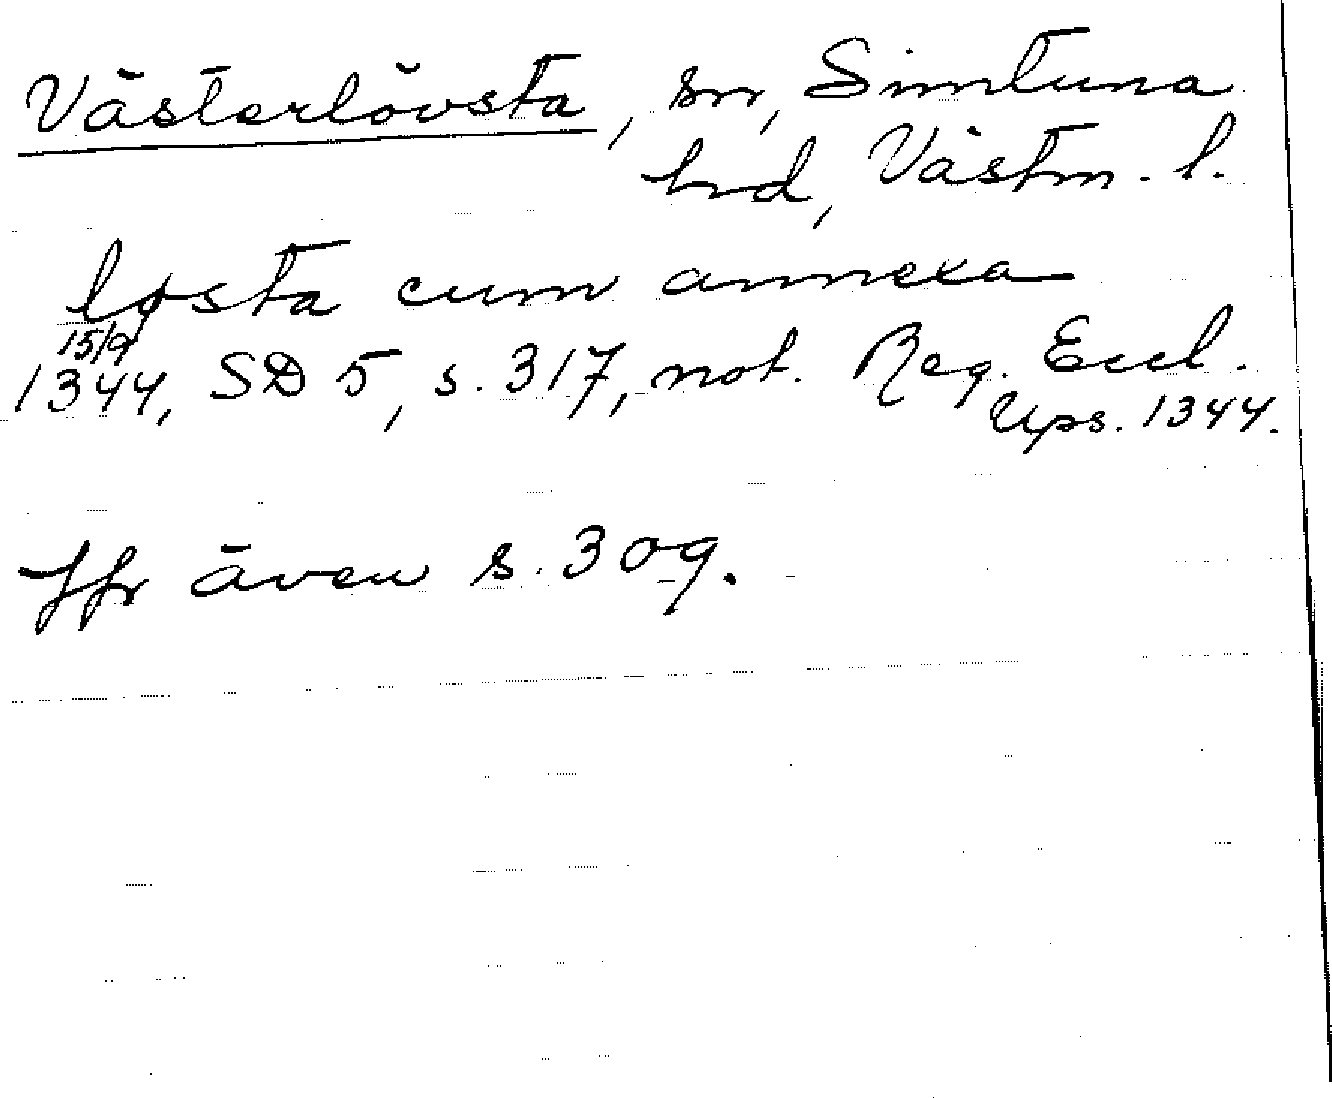 Västerlövsta, sn, Simtuna
hd, Västm. l.
løsta cum annexa
15/9
1344, SD 5, s. 317, not. Reg. Eccl.
Ups. 1344.
Jfr även s. 309.